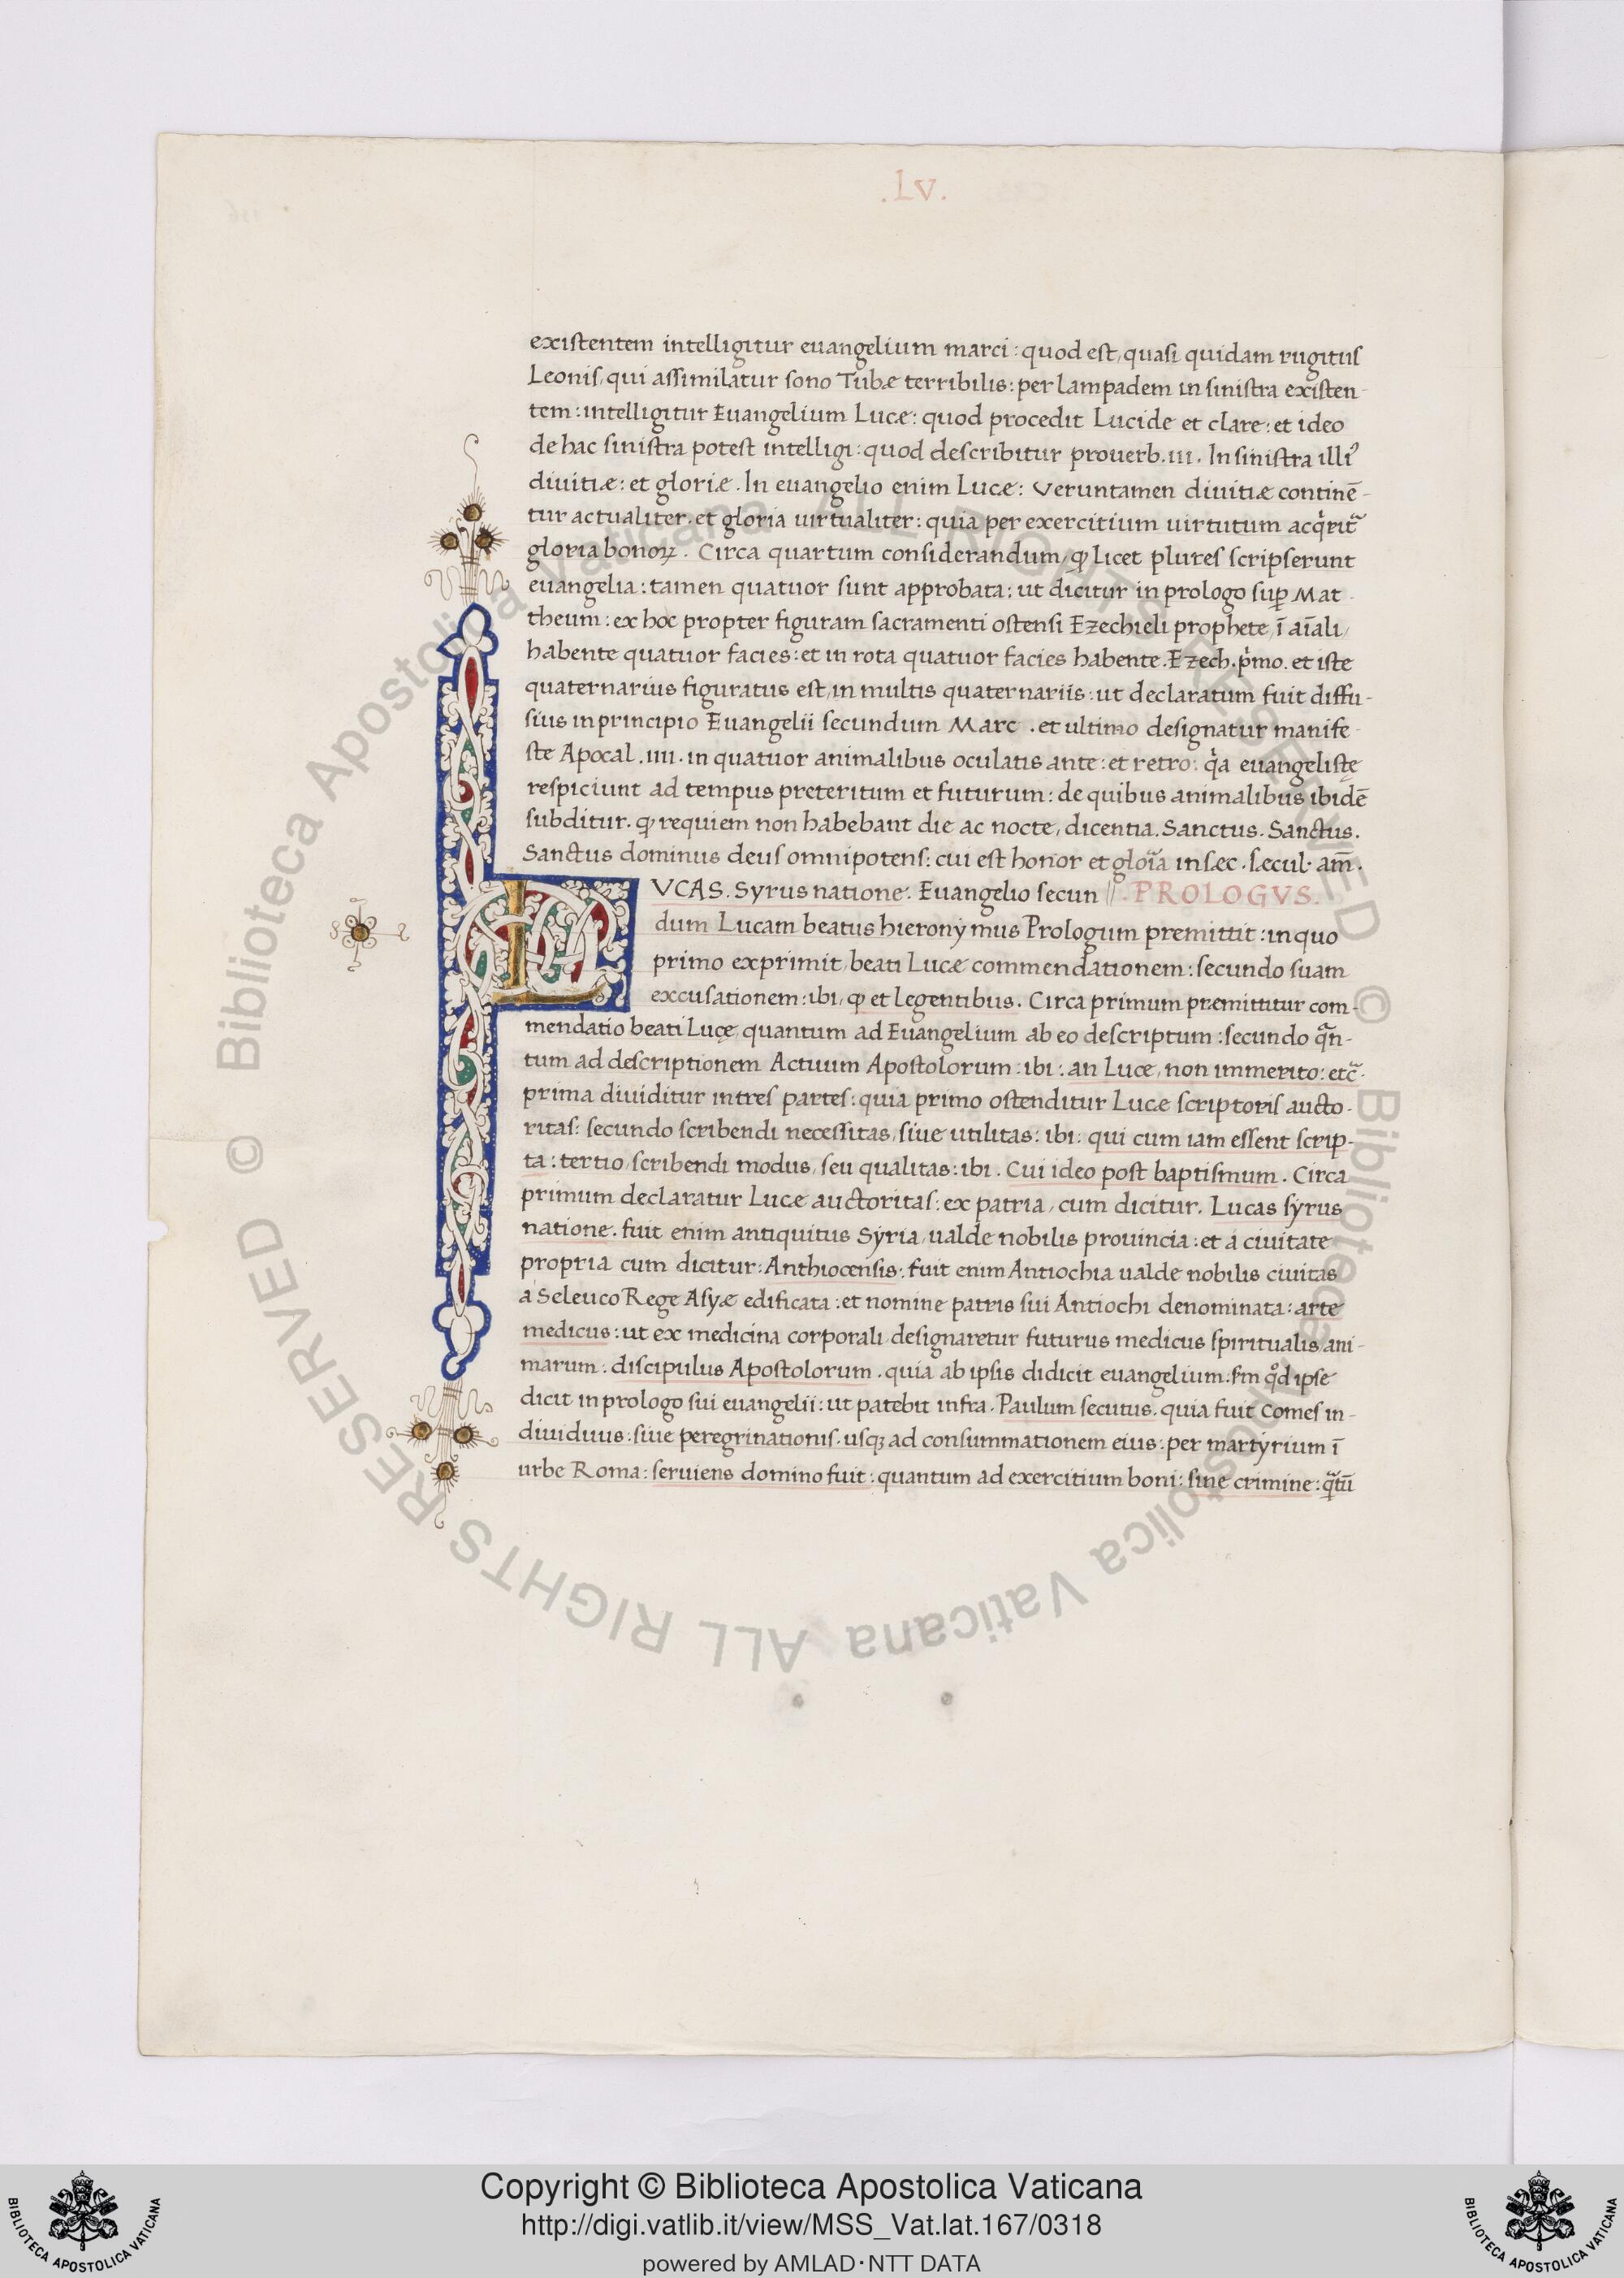 .Lv.
existentem intelligitur euangelium marci: quod est, quasi quidam rugitus
Leonis, qui assimilatur sono Tubæ terribilis: per lampadem in sinistra existen-
tem: intelligitur Euangelium Lucæ: quod procedit Lucide et clare: et ideo
de hac sinistra potest intelligi: quod describitur prouerb. III. In sinistra illiꝰ
diuitiæ: et gloriæ. In euangelio enim Lucæ: veruntamen diuitiæ continē-
tur actualiter. et gloria uirtualiter: quia per exercitium uirtutum acq̇rit᷑
gloria bonoꝝ. Circa quartum considerandum, ꝙ licet plures scripserunt
euangelia: tamen quatuor sunt approbata: ut dicitur in prologo suꝑ Mat-
theum: ex hoc propter figuram sacramenti ostensi Ezechieli prophete, ī aīali,
habente quatuor facies: et in rota quatuor facies habente. Ezech. p̍mo. et iste
quaternarius figuratus est, in multis quaternariis: ut declaratum fuit diffu-
sius in principio Euangelii secundum Marc. et ultimo designatur manife-
ste Apocal. IIII. in quatuor animalibus oculatis ante: et retro: q̍a euangelistę
respiciunt ad tempus preteritum et futurum: de quibus animalibus ibidē
subditur. ꝙ requiem non habebant die ac nocte, dicentia. Sanctus. Sanctus.
Sanctus dominus deus omnipotens: cui est honor et gloīa in sæc. sæcul. am̄.
LVCAS. Syrus natione. Euangelio secun// .PROLOGVS.
dum Lucam beatus hieronymus Prologum premittit: in quo
primo exprimit, beati Lucæ commendationem: secundo suam
excusationem: ibi, ꝙ et legentibus. Circa primum præmittitur com-
mendatio beati Lucę, quantum ad Euangelium ab eo descriptum: secundo qᷓn-
tum ad descriptionem Actuum Apostolorum: ibi: an Lucæ, non immerito: etc᷑.
prima diuiditur in tres partes: quia primo ostenditur Lucæ scriptoris aucto-
ritas: secundo scribendi necessitas, siue utilitas: ibi: qui cum iam essent scrip-
ta: tertio, scribendi modus, seu qualitas: ibi. Cui ideo post baptismum. Circa
primum declaratur Lucæ auctoritas: ex patria, cum dicitur. Lucas syrus
natione. fuit enim antiquitus Syria, ualde nobilis prouincia: et a ciuitate
propria cum dicitur: Anthiocensis: fuit enim Antiochia ualde nobilis ciuitas
a Seleuco Rege Asyæ edificata: et nomine patris sui Antiochi denominata: arte
medicus: ut ex medicina corporali, designaretur futurus medicus spiritualis, ani-
marum: discipulus Apostolorum. quia ab ipsis didicit euangelium: fm qͦd ipse
dicit in prologo sui euangelii: ut patebit infra. Paulum secutus. quia fuit Comes in-
diuiduus: siue peregrinationis. usqꝫ ad consummationem eius: per martyrium ī
urbe Roma: seruiens domino fuit: quantum ad exercitium boni: sine crimine: qᷓtū
© Biblioteca Apostolica Vaticana ALL RIGHTS RESERVED © Biblioteca Apostolica Vaticana ALL RIGHTS RESERVED
Copyright © Biblioteca Apostolica Vaticana
http://digi.vatlib.it/view/MSS_Vat.lat.167/0318
powered by AMLAD·NTT DATA
BIBLIOTECA APOSTOLICA VATICANA
BIBLIOTECA APOSTOLICA VATICANA